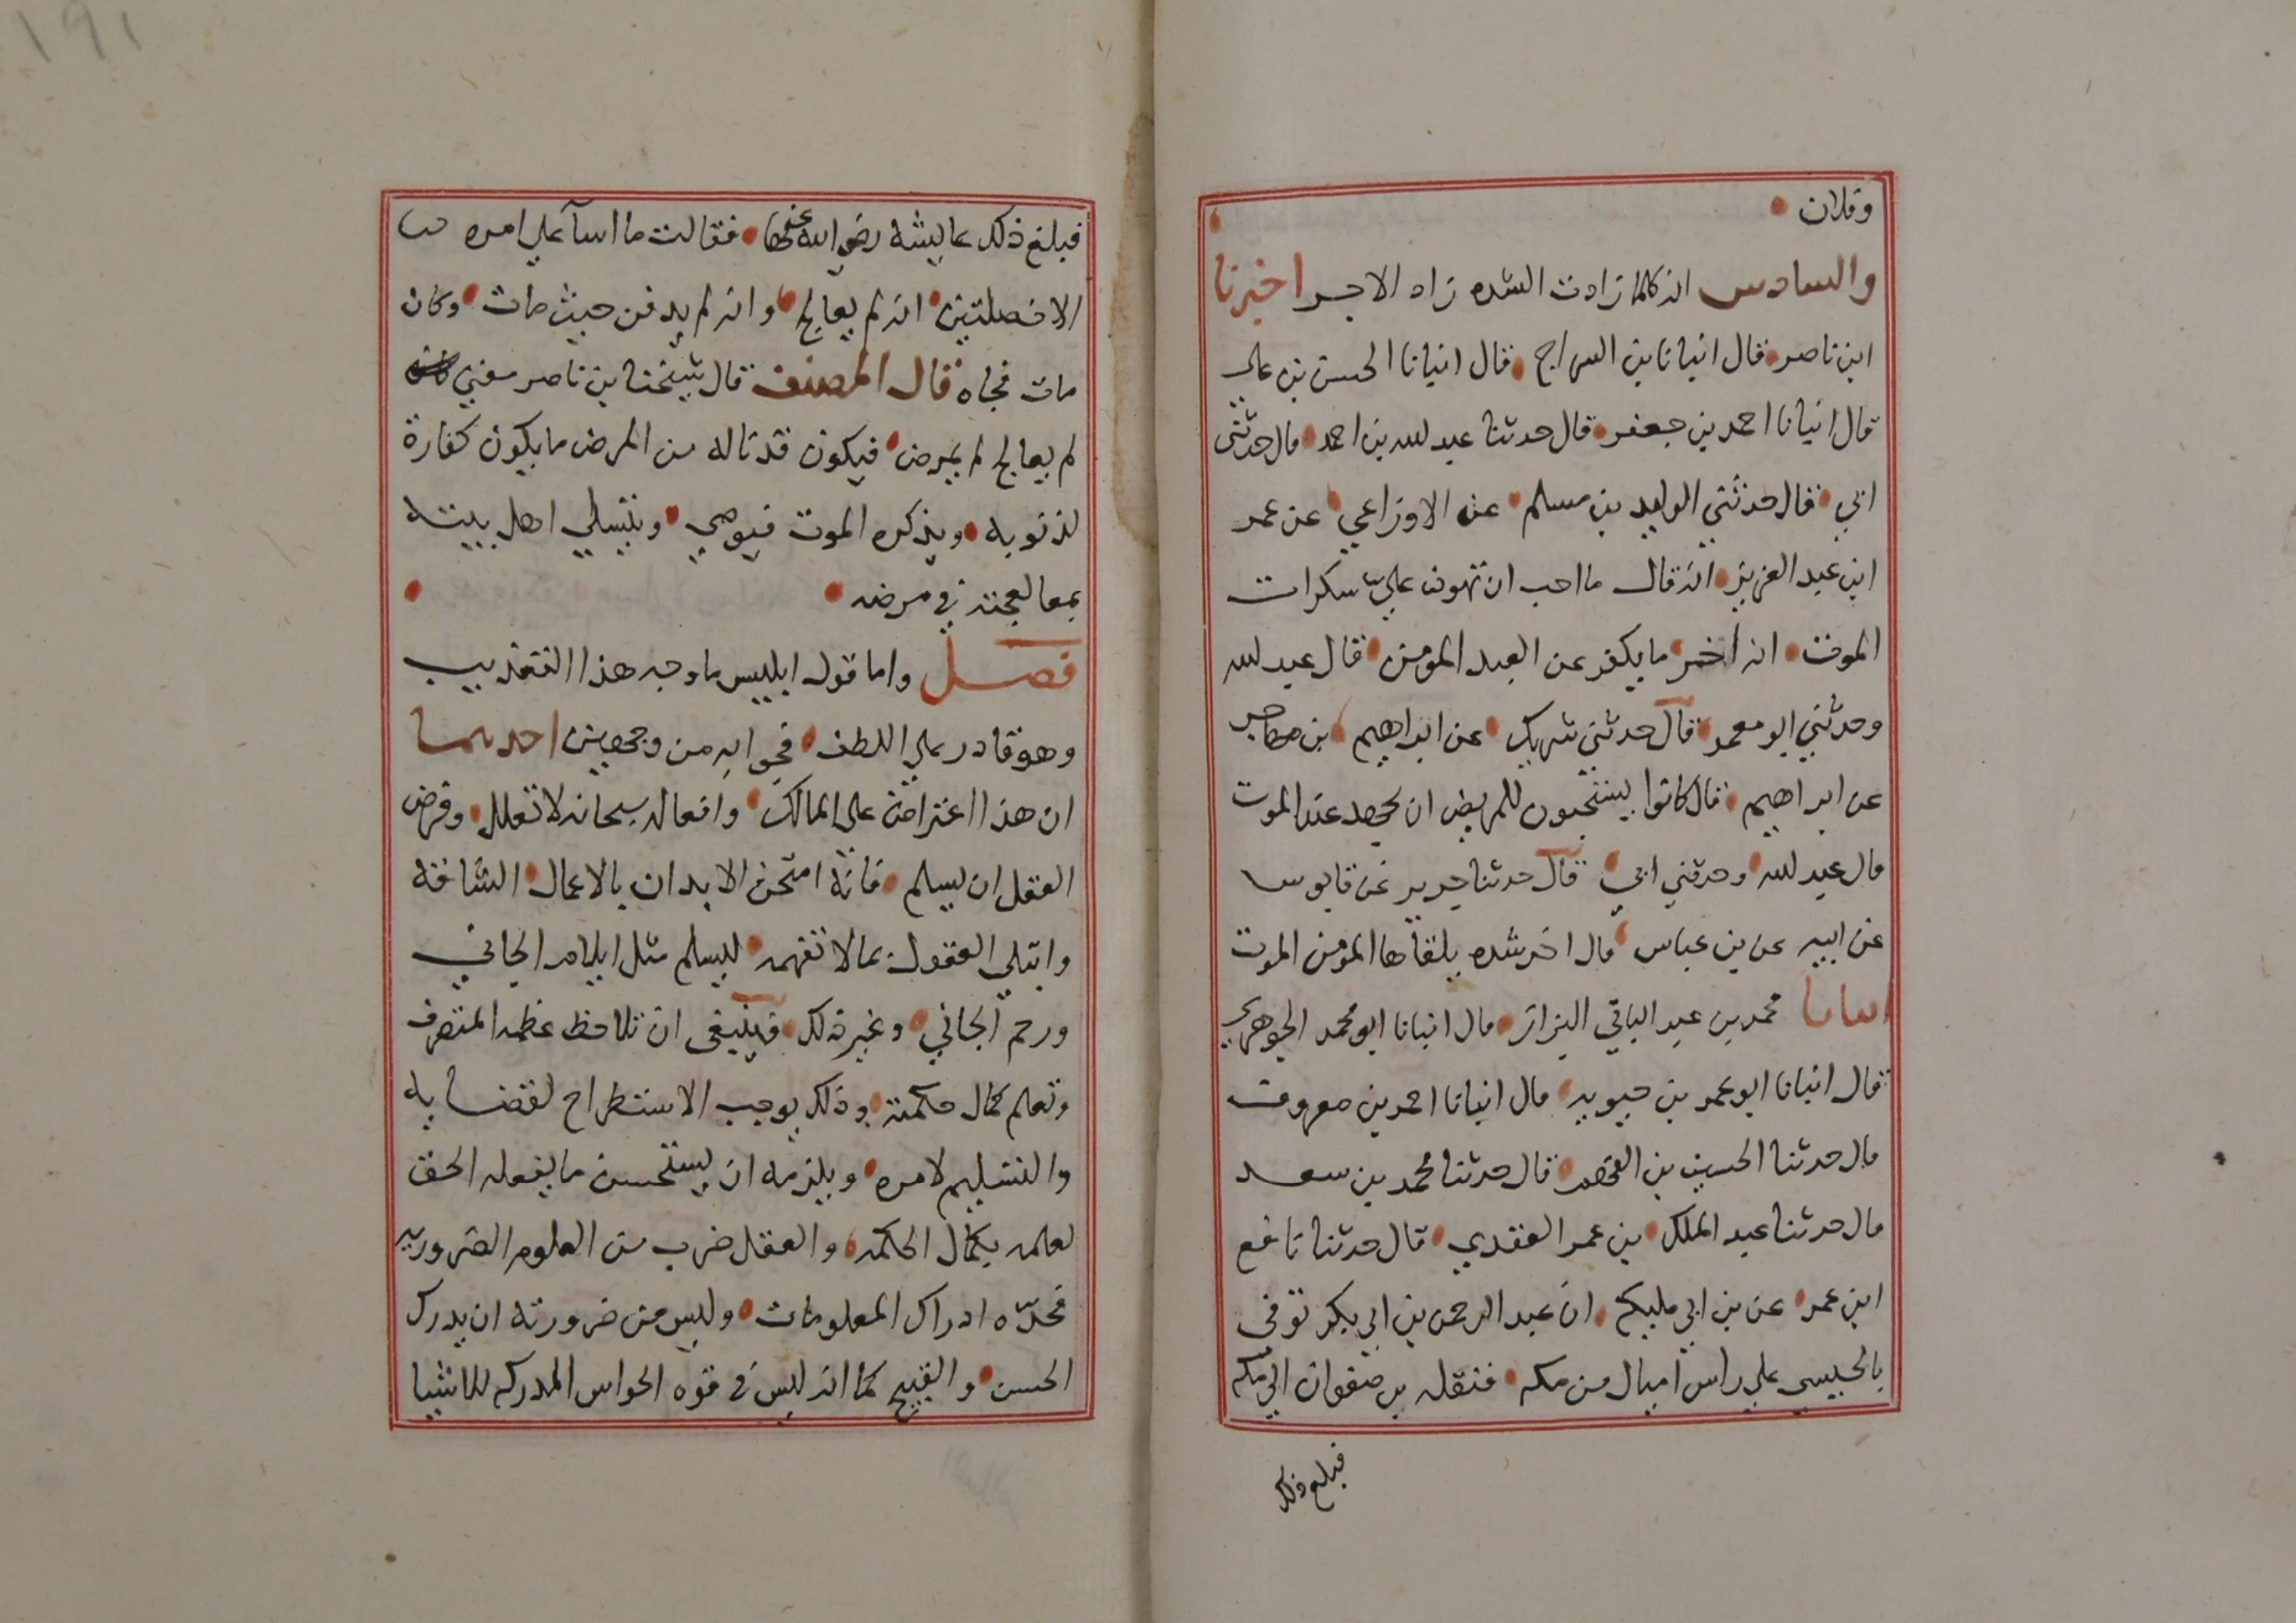 وفلان
والسادس انه كلما زادت الشده زاد الاجر اخبرنا
ابن ناصر قال انبانا بن السراج قال انبانا الحسن بن علي
قال انبانا احمد بن جعفر قال حدثنا عبد لله بن احمد قال حدثني
ابي قال حدثني الوليد بن مسلم عن الاوزاعي عن عمر
ابن عبد العزيز انه قال ما احب ان تهون علي سكرات
الموت انه اخر ما يكفر عن العبد المومن قال عبد لله
وحدثني ابو معمر قال حدثني شريك عن ابراهيم بن مهاجر
عن ابراهيم قال كانوا يستحبون للمريض ان يجهد عند الموت
قال عبد لله وحدثني ابي قال حدثنا جرير عن قابوس
عن ابيه عن بن عباس قال اخر شده يلقاها المومن الموت
انبانا محمد بن عبد الباقي البزاز قال انبانا ابو محمد الجوهري
قال انبانا ابو عمر بن حيويه قال انبانا احمد بن معروف
قال حدثنا الحسين بن الفهم قال حدثنا محمد بن سعد
قال حدثنا عبد الملك بن عمر العقدي قال حدثنا نافع
ابن عمر عن بن ابي مليكه ان عبد الرحمن بن ابي بكر توفى
بالحبيسي علي راس اميال من مكه فنقله بن صفوان الي مكه
فبلغ ذلك
١٩١
فبلغ ذلك عايشه رضي الله عنها فقالت ما اسآ علي امره
الا خصلتين انه لم يعالج وانه لم يدفن حيث مات وكان
مات فجاه قال المصنف قال شيخنا بن ناصر معني
لم يعالج لم يمرض فيكون قد ناله من المرض ما يكون كفارة
لذنوبه ويذكره الموت فيوصي ويتسلي اهل بيته
بمعالجته في مرضه
فصل واما قول ابليس ما وجه هذا التعذيب
وهو قادر علي اللطف فجوابه من وجهين احدهما
ان هذا اعتراض على المالك وافعاله سبحانه لا تعلل وفرض
العقل ان يسلم فانه امتحن الابدان بالاعمال الشاقه
وابتلي العقول بما لا تفهمه ليسلم مثل ايلام الجاني
ورحم الجاني وغير ذلك فينبغى ان تلاحظ عظمه المتصرف
وتعلم كمال حكمته وذلك يوجب الاستطراح لقضايه
والتسليم لامره ويلزمه ان يستحسن ما يفعله الحق
لعلمه بكمال الحكمه والعقل ضرب من العلوم الضروريه
فحدّه ادراك المعلومات وليس من ضرورته ان يدرك
الحسن والقبيح كما انه ليس في قوه الحواس المدركه للاشيا